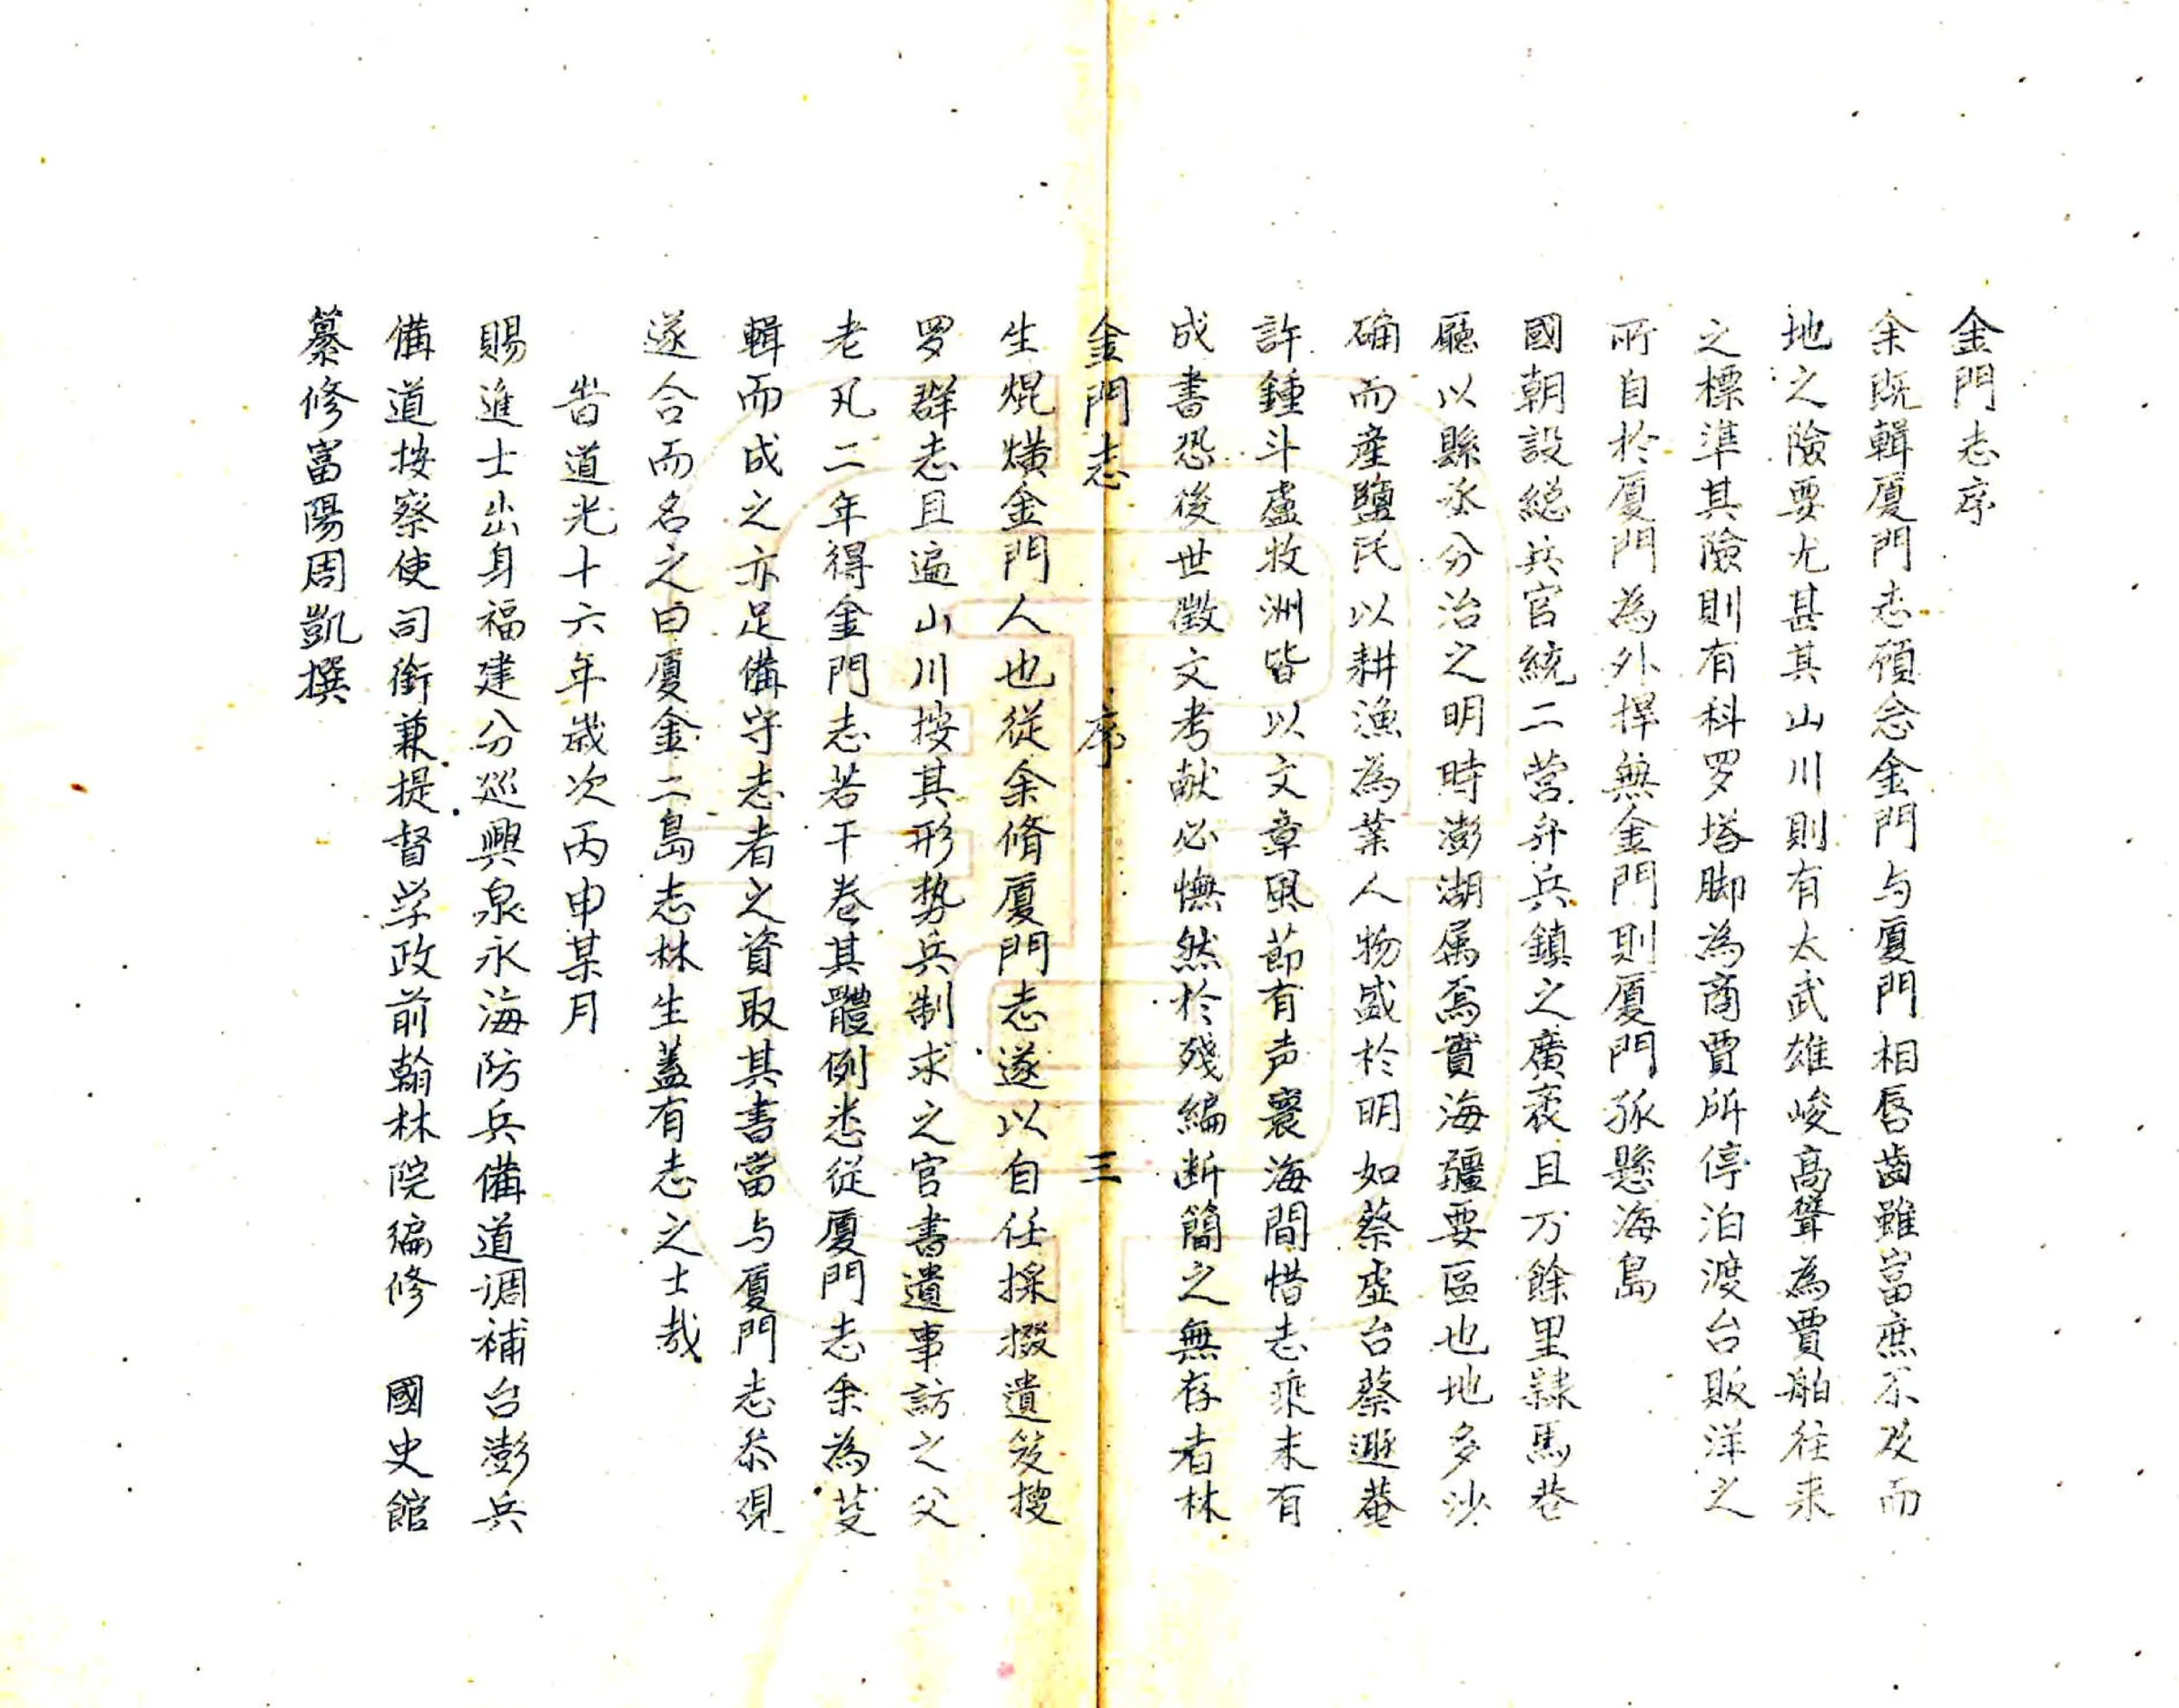 金門志序
余既輯厦門志頋念金門与厦門相唇齒雖富庶不及而
地之險要尤甚其山川則有太武雄峻高聳為賈舶往来
之標準其險則有料罗塔脚為商賈所停泊渡台販洋之
所自於厦門為外捍無金門則厦門孤懸海島
國朝設総兵官統二营弁兵鎮之廣袤且万餘里隷馬巷
廳以縣丞分治之明時澎湖属焉實海疆要區也地多沙
确而產鹽民以耕漁為業人物盛於明如蔡虚台蔡遯菴
許鍾斗盧牧洲皆以文章風節有声寰海間惜志乘未有
成書恐後世徵文考献必憮然於殘編断簡之無存者林
金門志 序 三
生焜熿金門人也從余脩厦門志遂以自任採掇遺笈搜
罗群志且遍山川按其形势兵制求之官書遺事訪之父
老凡二年得金門志若干卷其體例悉從厦門志余為芟
輯而成之亦足備守志者之資取其書當与厦門志叅覌
遂合而名之曰厦金二島志林生蓋有志之士哉
旹道光十六年歲次丙申某月
賜進士出身福建分巡興泉永海防兵備道调補台澎兵
備道按察使司銜兼提督学政前翰林院编修 國史館
纂修富陽周凱撰